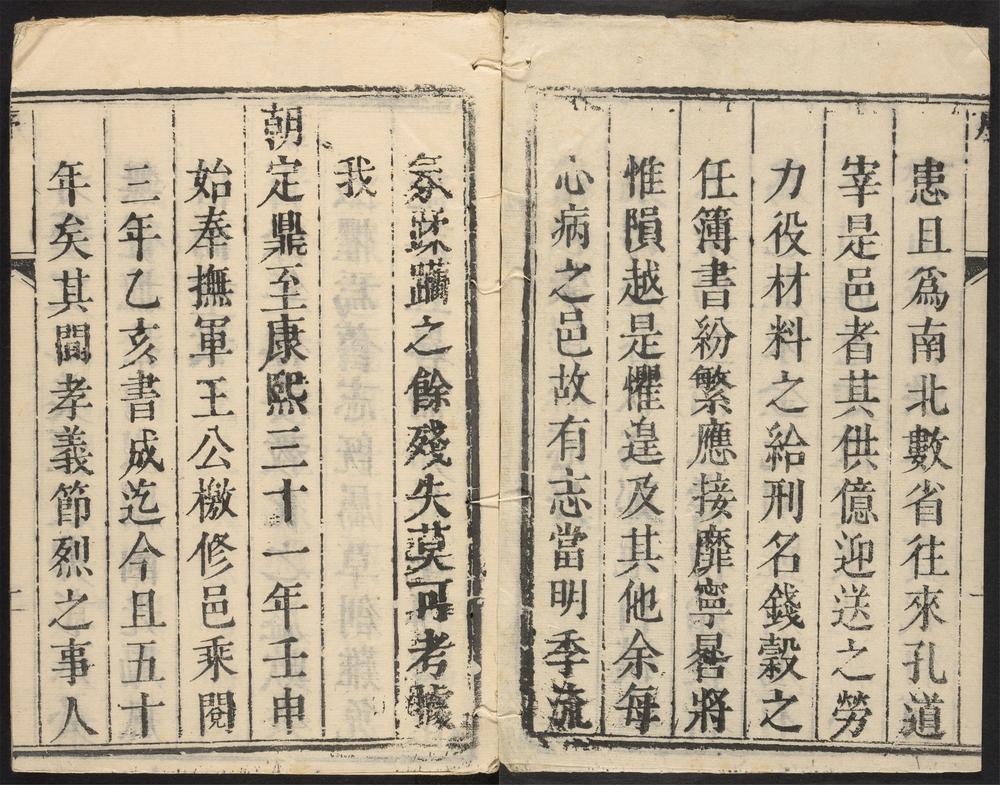 患且為南北數省往來孔道
宰是邑者其供億迎送之勞
力役材料之給刑名錢穀之
任簿書紛繁應接靡寧晷將
惟隕越是懼遑及其他余每
心病之邑故有志當明季流
氛蹂躪之餘殘失莫可考據
我
朝定鼎至康熙三十一年壬申
始奉撫軍王公檄修邑乘閱
三年乙亥書成迄今且五十
年矣其間孝義節烈之事人